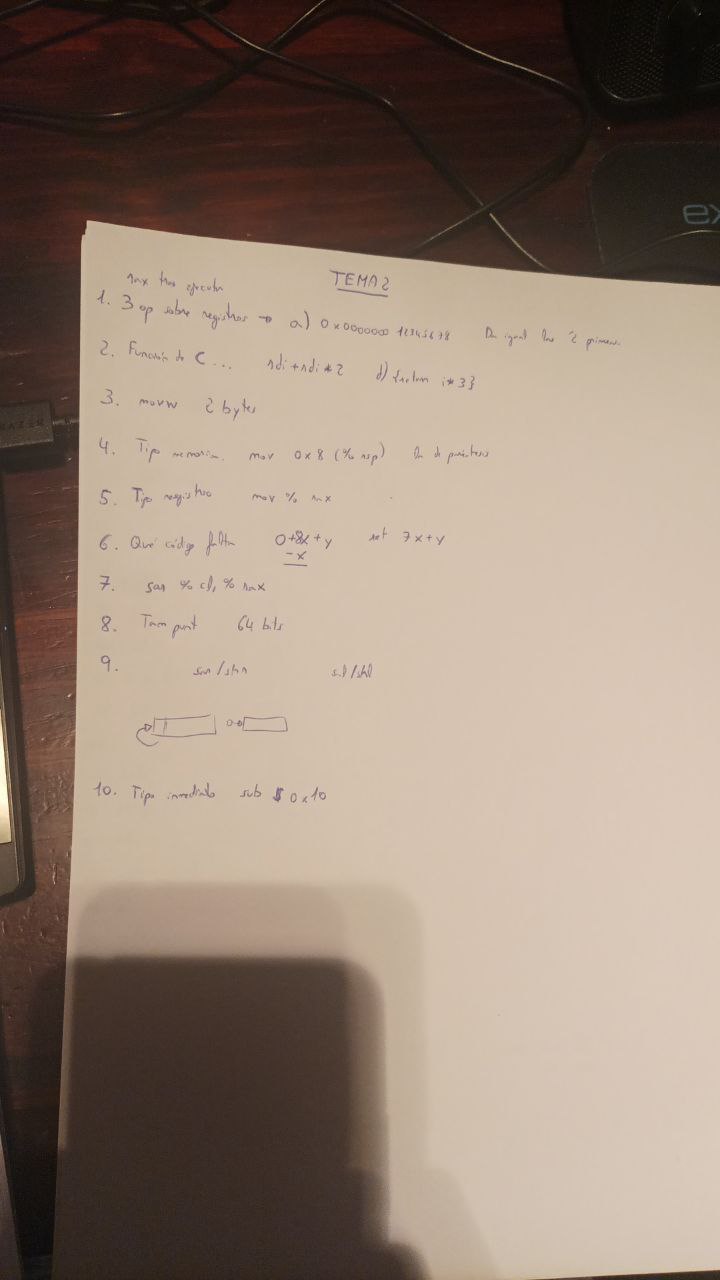 TEMA 2
rax tras ejecutar
1. 3 op sobre registros → a) 0x00000000 12345678 Da igual las 2 primeras
2. Función de C ... rdi+rdi*2 d) {return i*3}
3. movw 2 bytes
4. Tipo memoria. mov 0x8 (%rsp) de paréntesis
5. Tipo registro mov % rax
6. Qué código falta 0+8x+y ret 7x+y
-x
7. sar % cl, % rax
8. Tam punt 64 bits
9. sar/shr sal/shl
0→
10. Tipo inmediato sub $ 0x10
ex